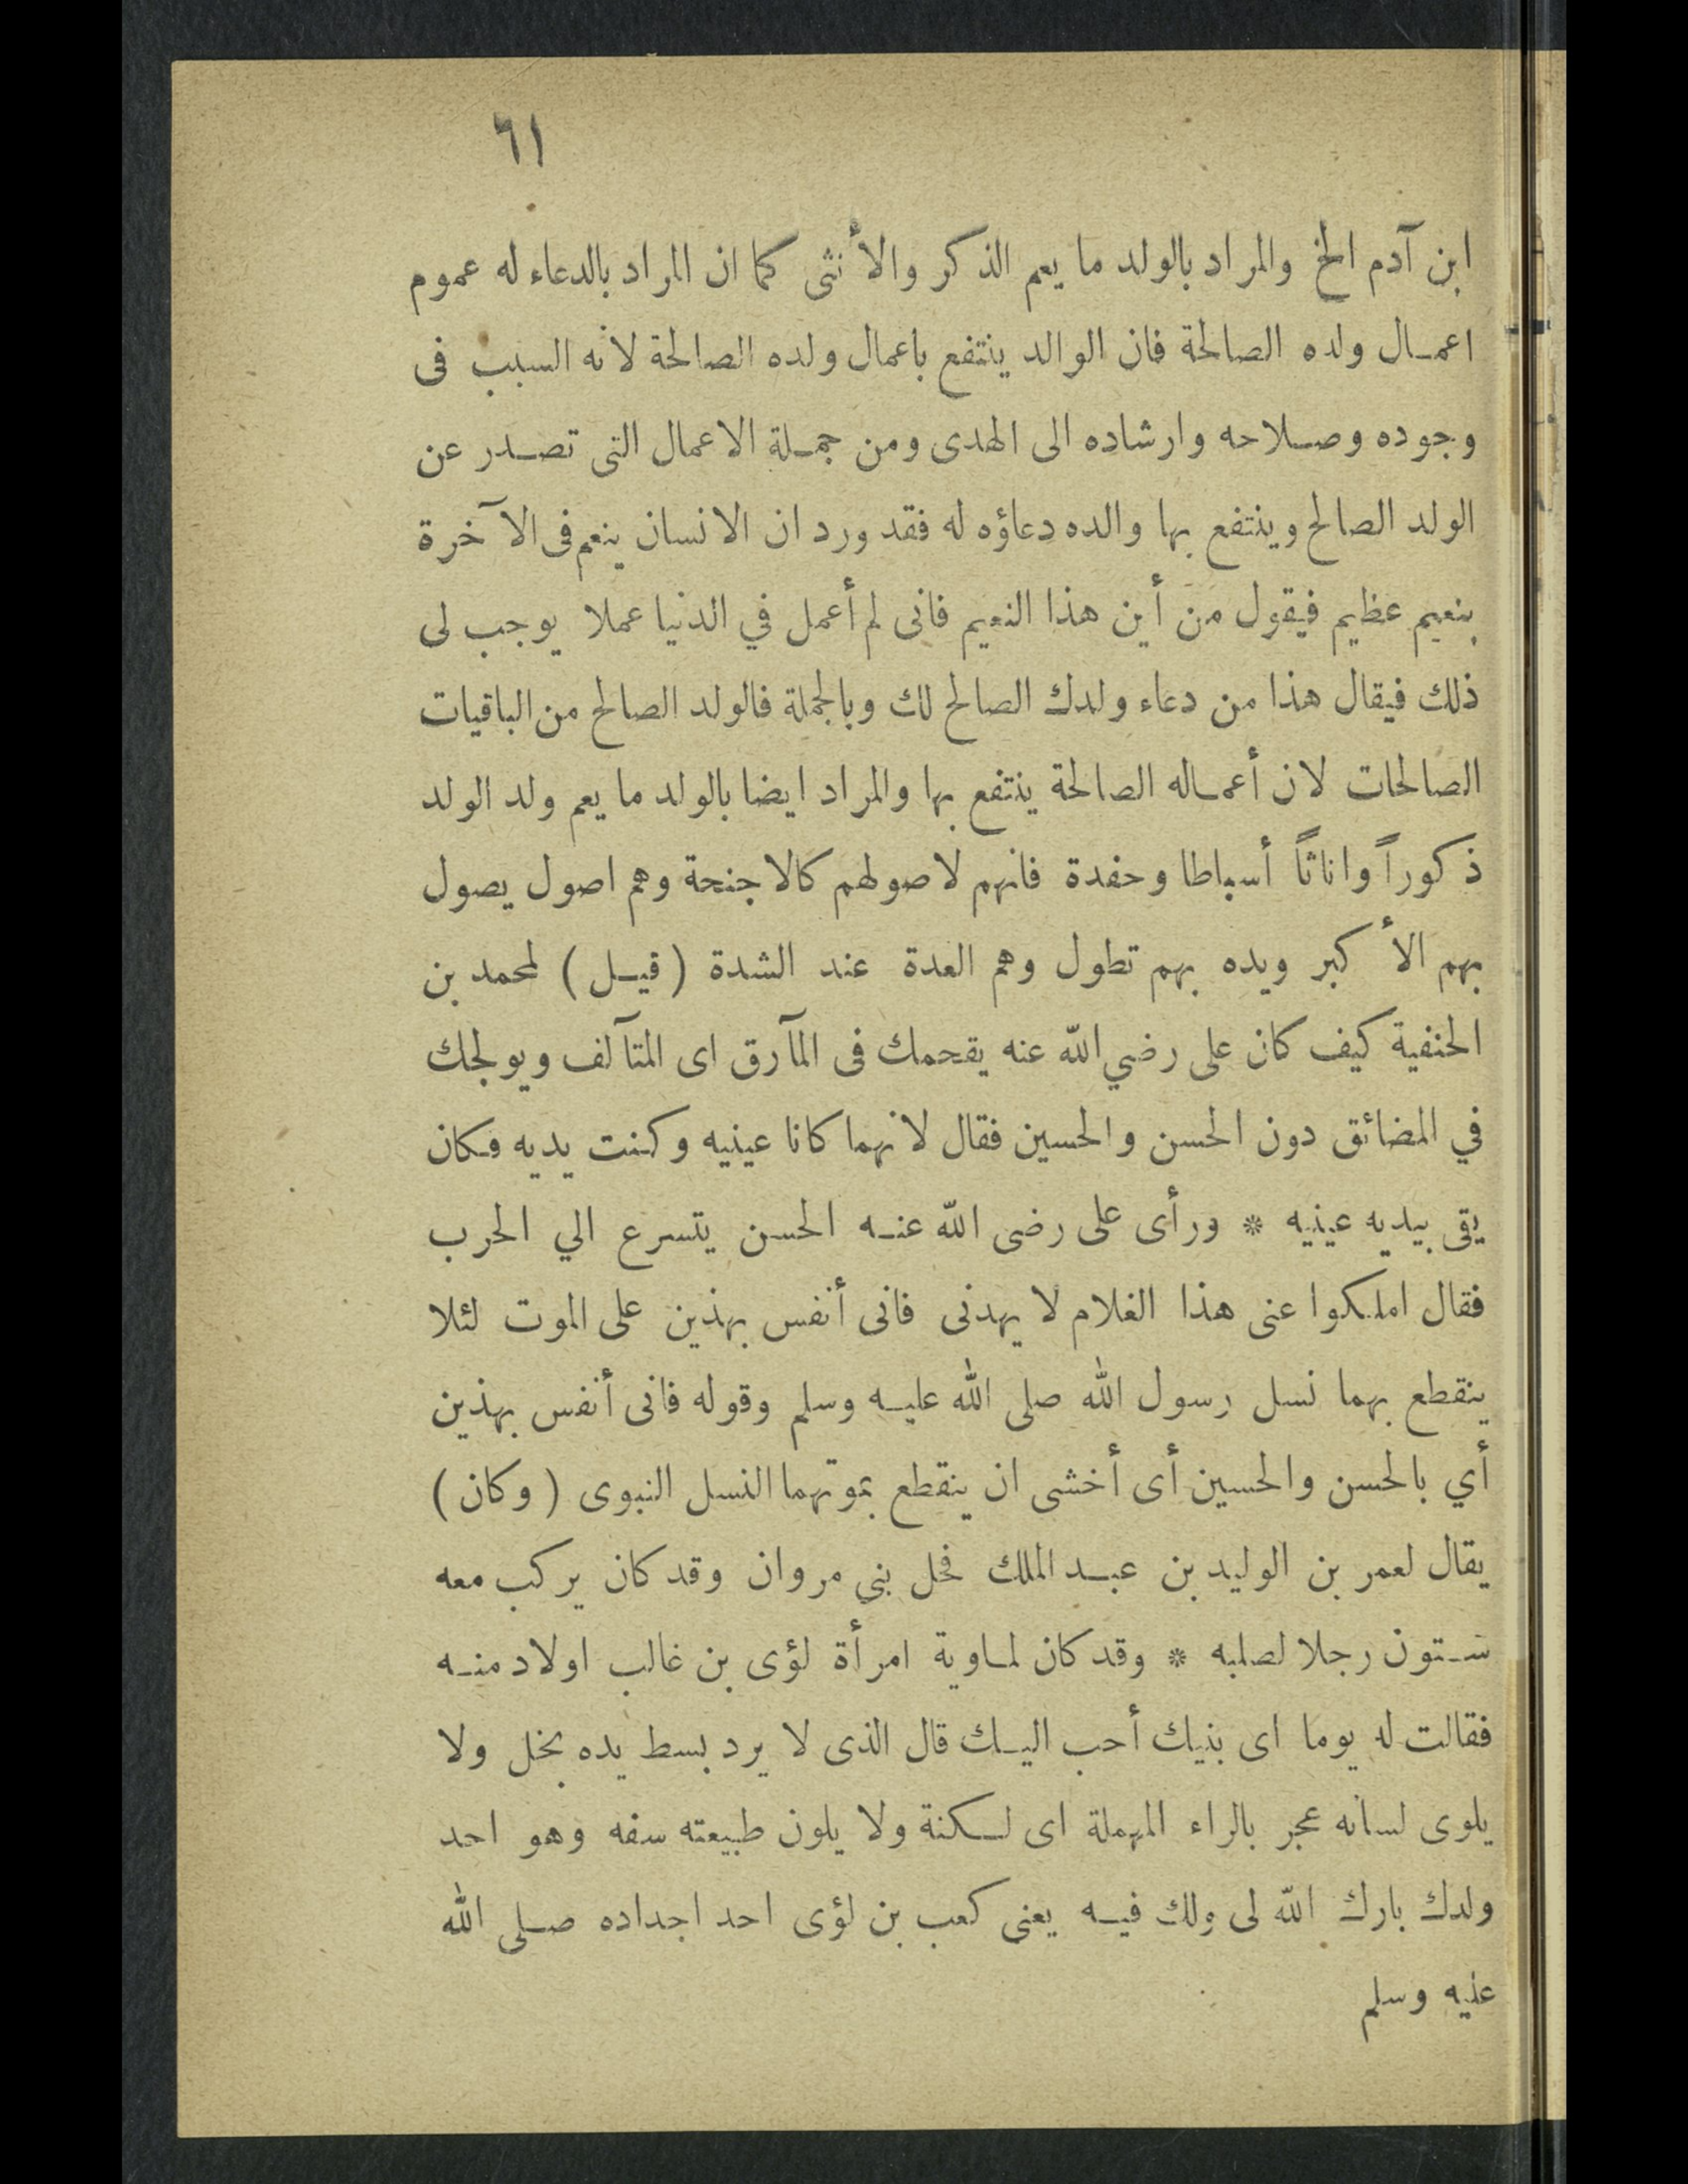 ٦١
ابن آدم الخ والمراد بالولد ما يعم الذكر والأنثى كما ان المراد بالدعاء له عموم
اعمال ولده الصالحة فان الوالد ينتفع باعمال ولده الصالحة لانه السبب فى
وجوده وصلاحه وارشاده الى الهدى ومن جملة الاعمال التى تصدر عن
الولد الصالح وينتفع بها والده دعاؤه له فقد ورد ان الانسان ينعم فى الآخرة
بنعيم عظيم فيقول من أين هذا النعيم فانى لم أعمل في الدنيا عملا يوجب لى
ذلك فيقال هذا من دعاء ولدك الصالح لك وبالجملة فالولد الصالح من الباقيات
الصالحات لان أعماله الصالحة ينتفع بها والمراد ايضا بالولد ما يعم ولد الولد
ذكوراً واناثاً أسباطا وحفدة فانهم لاصولهم كالاجنحة وهم اصول يصول
بهم الأكبر ويده بهم تطول وهم العدة عند الشدة (قيل) لمحمد بن
الحنفية كيف كان على رضي الله عنه يقحمك فى المآرق اى المتآلف ويولجك
في المضائق دون الحسن والحسين فقال لانهما كانا عينيه وكنت يديه فكان
يقى بيديه عينيه * ورأى على رضى الله عنه الحسن يتسرع الي الحرب
فقال املكوا عنى هذا الغلام لا يهدنى فانى أنفس بهذين على الموت لئلا
ينقطع بهما نسل رسول الله صلى الله عليه وسلم وقوله فانى أنفس بهذين
أي بالحسن والحسين أى أخشى ان ينقطع بموتهما النسل النبوى (وكان)
يقال لعمر بن الوليد بن عبد الملك فحل بنى مروان وقد كان يركب معه
ستون رجلا لصلبه * وقد كان لماوية امرأة لؤى بن غالب اولاد منه
فقالت له يوما اى بنيك أحب اليك قال الذى لا يرد بسط يده بخل ولا
يلوى لسانه عجر بالراء المهملة اى لكنة ولا يلون طبيعته سفه وهو احد
ولدك بارك الله لى ولك فيه يعنى كعب بن لؤى احد اجداده صلى الله
عليه وسلم